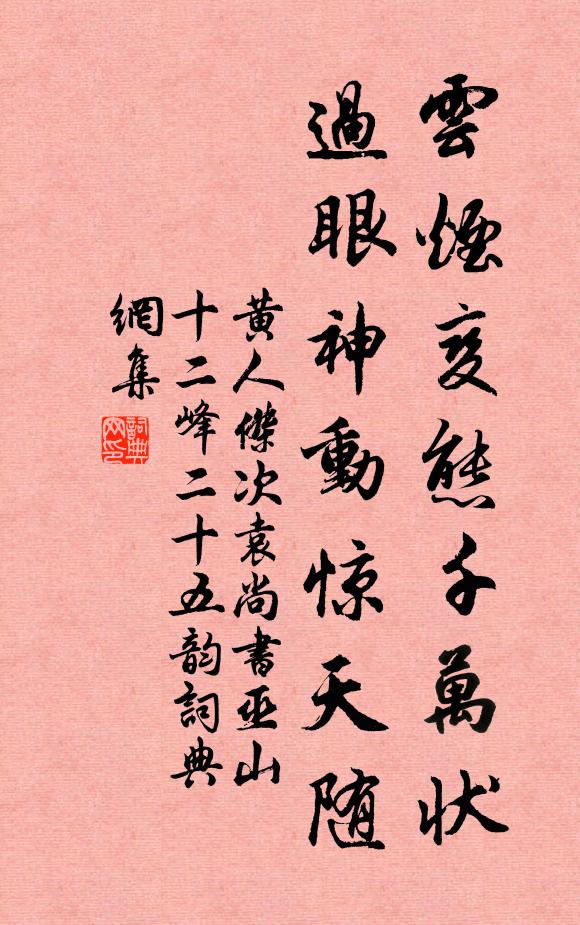 雲煙变態千萬状
過眼神動惊天随
黄人傑次袁尚書巫山
十二峰二十五韵詞典
網集
詞典
网印